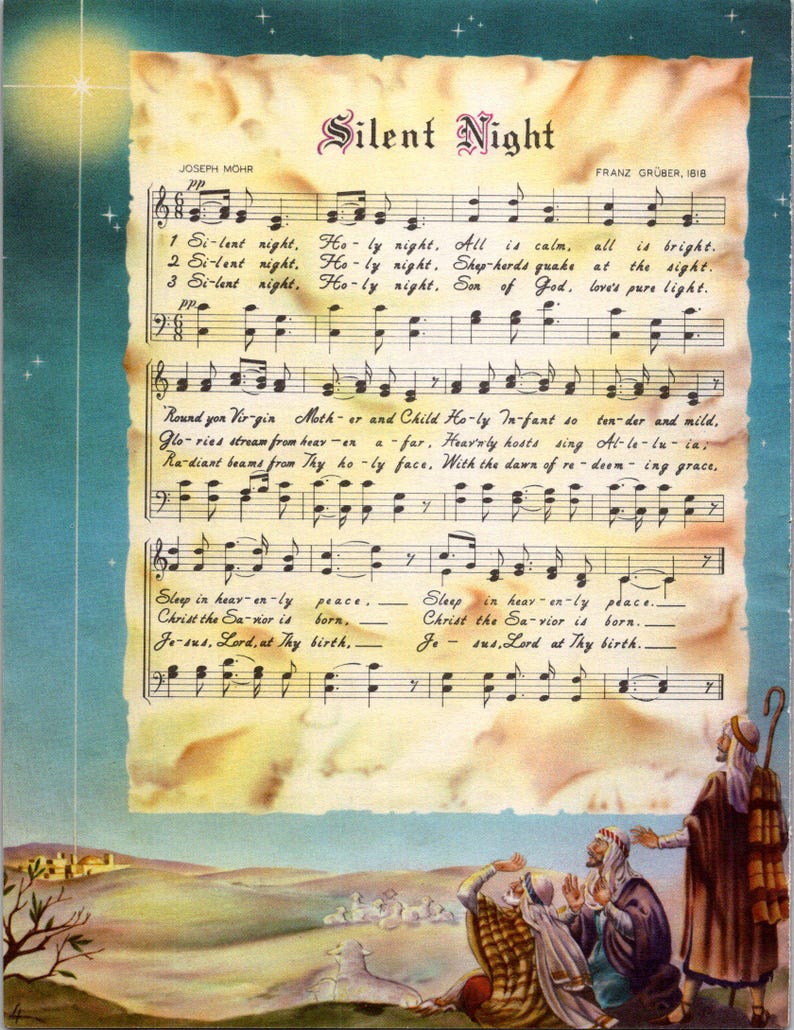 Silent Night
JOSEPH MÖHR
FRANZ GRÜBER, 1818
pp
1 Si-lent night, Ho-ly night, All is calm, all is bright.
2 Si-lent night, Ho-ly night, Shep-herds quake at the sight.
3 Si-lent night, Ho-ly night, Son of God, love's pure light.
pp
'Round yon Vir-gin Moth-er and Child Ho-ly In-fant so ten-der and mild,
Glo-ries stream from heav-en a-far, Heav'nly hosts sing Al-le-lu-ia;
Ra-diant beams from Thy ho-ly face, With the dawn of re-deem-ing grace,
Sleep in heav-en-ly peace, ___ Sleep in heav-en-ly peace. ___
Christ the Sa-vior is born, ___ Christ the Sa-vior is born. ___
Je-sus, Lord, at Thy birth, ___ Je-sus, Lord at Thy birth. ___
4